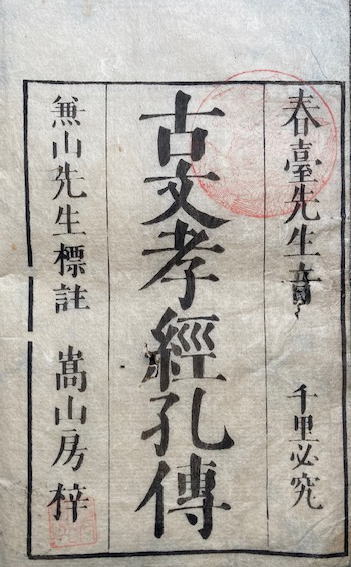 春臺先生音 千里必究
古文孝經孔傳
兼山先生標註 嵩山房梓